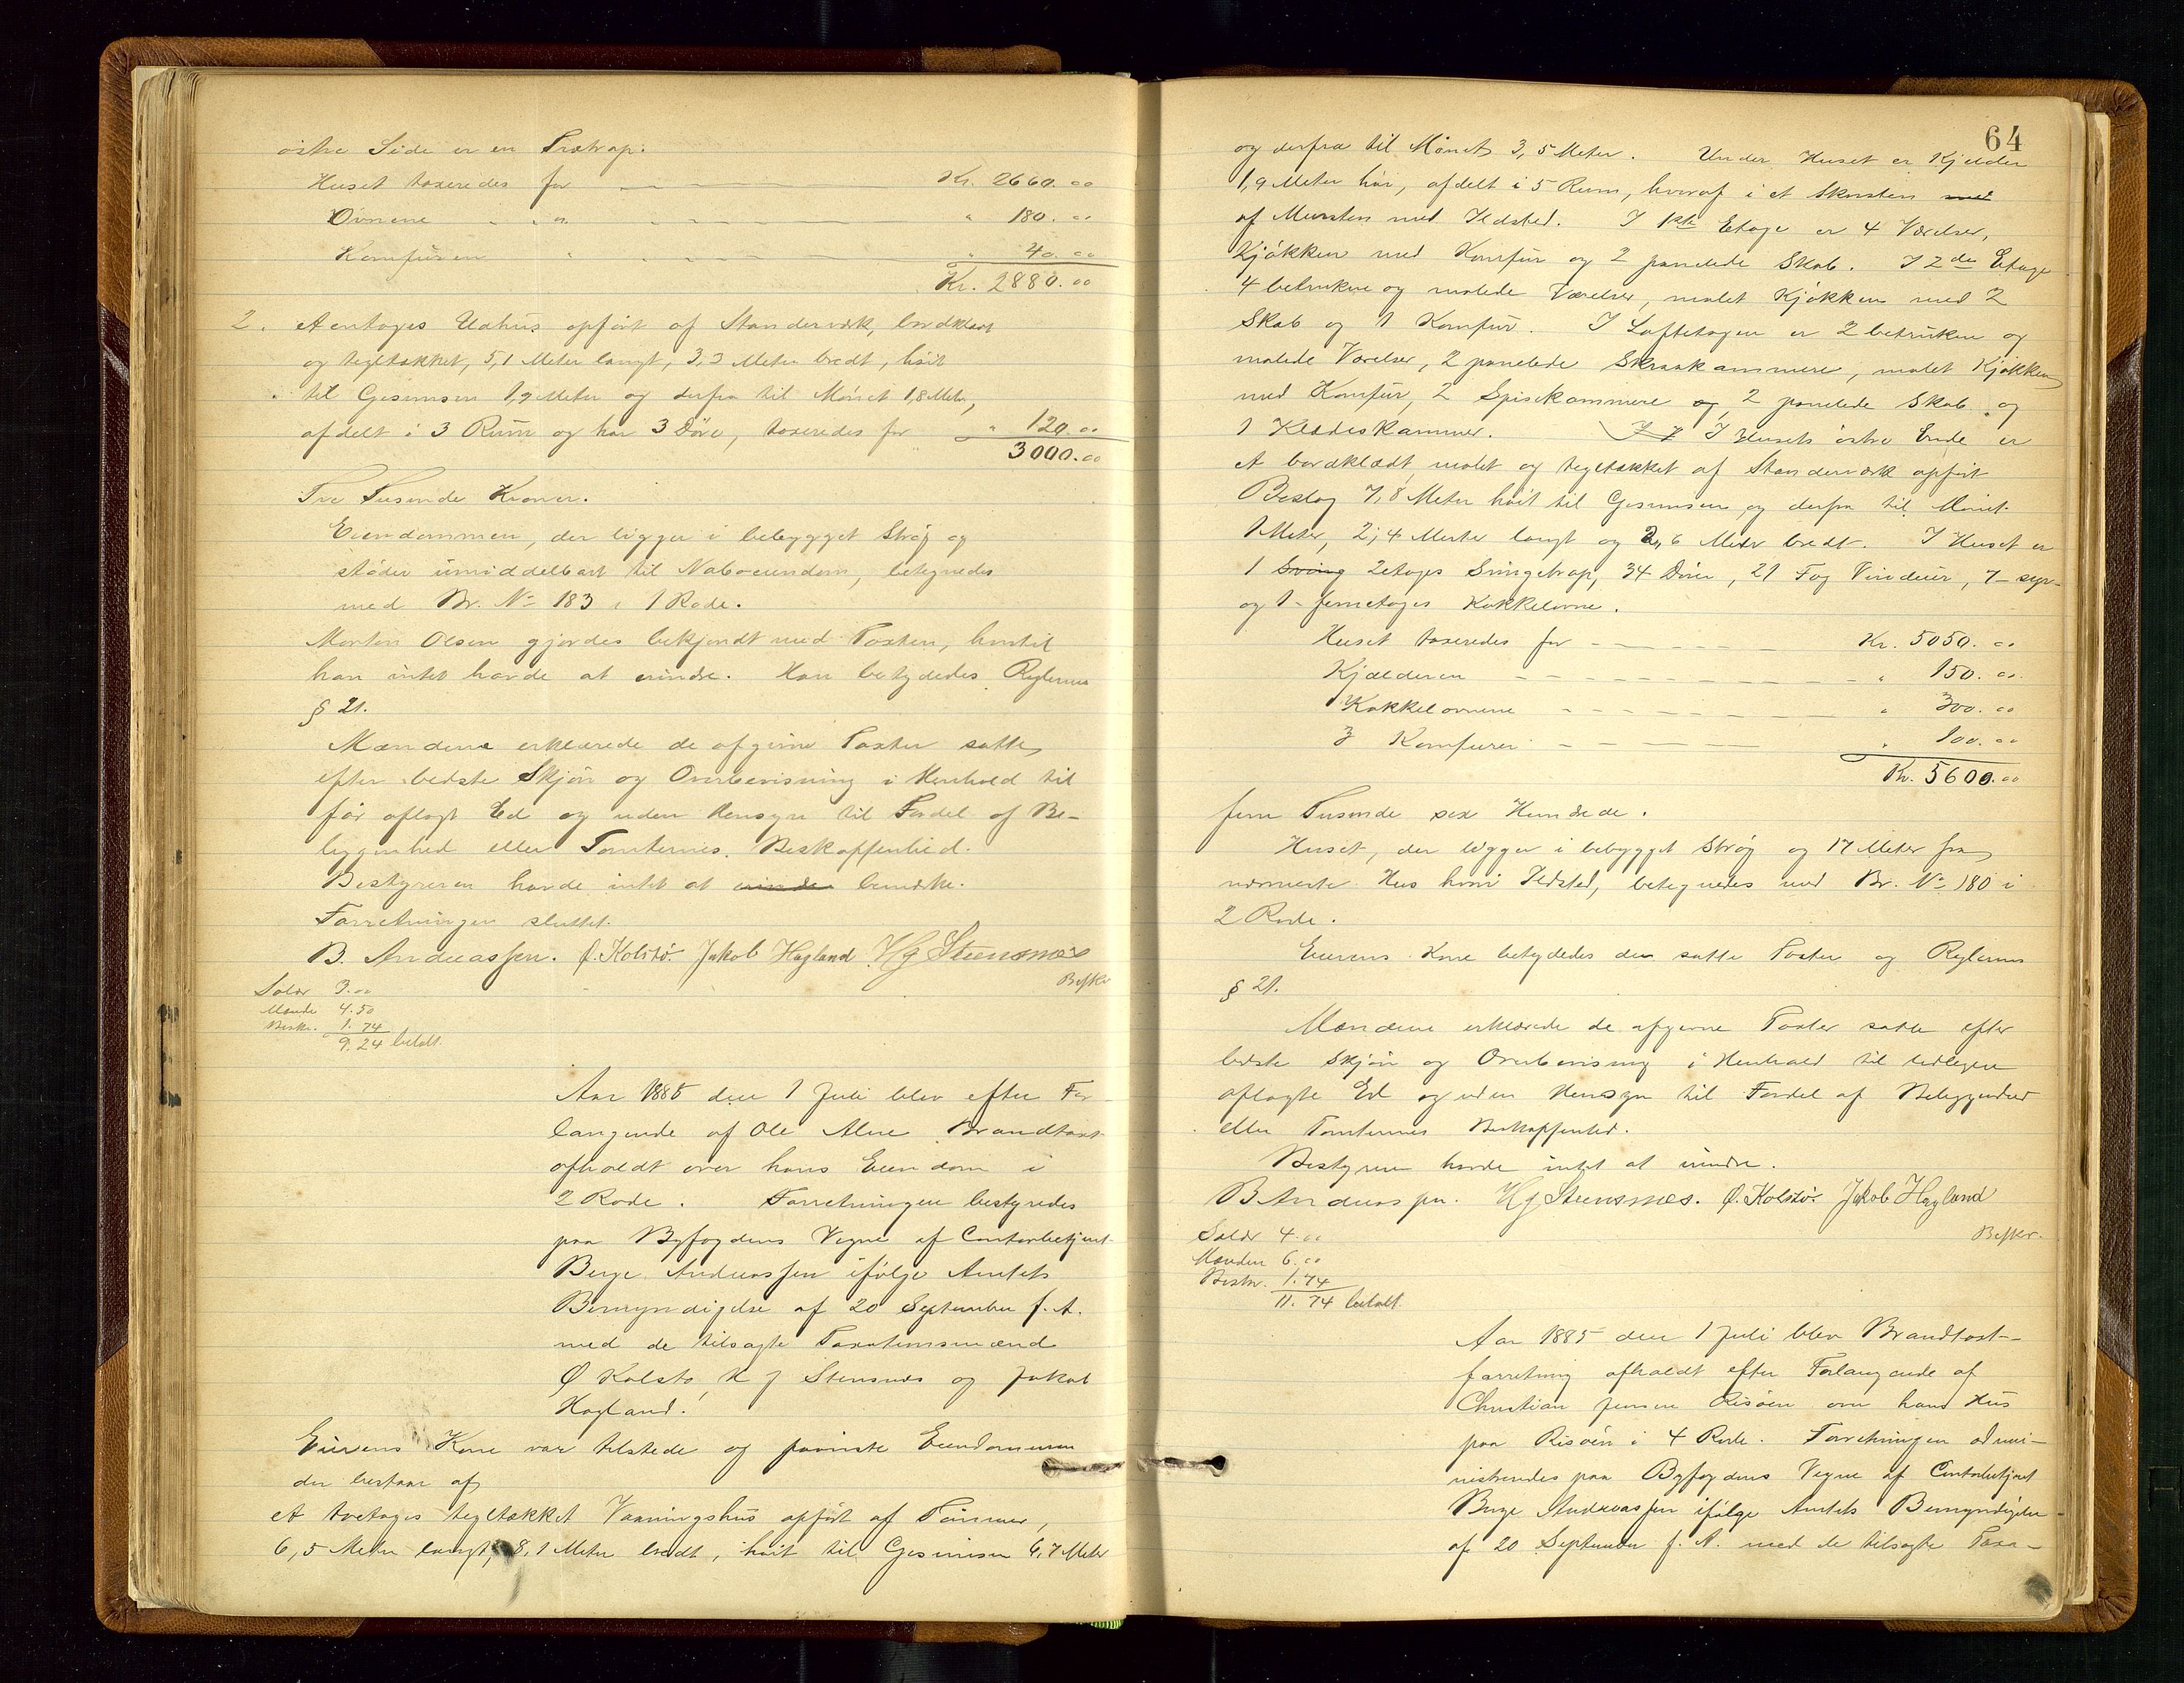 østre Side er en Trætrap.
Huset taxeredes for — Kr. 2660.00
Ovnene " " " 180.00
Komfuren " " 40.00
Kr. 2880.00
2. Et entages Udhus opført af Standerværk, bordklædt
og tegltækket, 5,1 Meter langt, 3,3 Meter bredt, høit
til Gesimsen 1,9 Meter og derfra til Mønet 1,8 Meter,
afdelt i 3 Rum og har 3 Døre, taxeredes for " 120.00
3000.00
Tre Tusende Kroner.
Eiendommen, der ligger i bebygget Strøg og
støder umiddelbart til Naboeiendom, betegnedes
med Br. No 183 i 1 Rode.
Morten Olsen gjordes bekjendt med Taxten, hvortil
han intet havde at erindre. Han betydedes Reglernes
§ 21.
Mændene erklærede de afgivne Taxter satte
efter bedste Skjøn og Overbevisning i Henhold til
før aflagt Ed og uden Hensyn til Fordel af Be-
liggenhed eller Tomternes Beskaffenhed.
Bestyreren havde intet at erindre bemærke.
Forretningen sluttet.
B. Andreassen. Ø. Kolstø Jakob Hagland Hg Steensnæs
Beskr
Salær 3.00
Mænde 4.50
Beskr. 1.74
9.24 betalt.
Aar 1885 den 1 Juli blev efter For-
langende af Ole Alne Brandtaxt
afholdt over hans Eiendom i
2 Rode. Forretningen bestyredes
paa Byfogdens Vegne af Contorbetjent
Berge Andreassen ifølge Amtets
Bemyndigelse af 20 September f. A.
med de tilsagte Taxationsmænd
Ø Kolstø, H J Stensnæs og Jakob
Hagland.
Eierens Kone var tilstede og paaviste Eiendommen
der bestaar af
et toetages tegltækket Vaaningshus opført af Tømmer,
6,5 Meter langt, 8,1 Meter bredt, høit til Gesimsen 6,7 Meter
64
og derfra til Mønet 3,5 Meter. Under Huset er Kjelder
1,9 Meter høi, afdelt i 5 Rum, hvoraf i et Skorsten med
af Mursten med Ildsted. I 1ste Etage er 4 Værelser,
Kjøkken med Komfur og 2 panelede Skab. I 2den Etage
4 betrukne og malede Værelser, malet Kjøkken med 2
Skab og 1 Komfur. I Loftetagen er 2 betrukne og
malede Værelser, 2 panelede Skraakammere, malet Kjøkken
med Komfur, 2 Spisekammere og 2 panelede Skab og
1 Klædeskammer. I Husets østre Ende er
et bordklædt malet og tegltækket af Standerværk opført
Beslag 7,8 Meter høit til Gesimsen og derfra til Mønet
1 Meter, 2,4 Meter langt og 2,6 Meter bredt. I Huset er
1 Sving 2etages Svingetrap, 34 Døre, 21 Fag Vinduer, 7 syv-
og 1 femetages Kakkelovne.
Huset taxeredes for — Kr. 5050.00
Kjælderen — " 150.00
Kakkelovnene — " 300.00
3 Komfurer — " 100.00
Kr. 5600.00
fem Tusende sex Hundrede.
Huset, der ligger i bebygget Strøg og 17 Meter fra
nærmeste Hus hvori Ildsted, betegnedes med Br. No 180 i
2 Rode.
Eierens Kone betydedes den satte Taxter og Reglernes
§ 21.
Mændene erklærede de afgivne Taxter satte efter
bedste Skjøn og Overbevisning i Henhold til tidligere
aflagte Ed og uden Hensyn til Fordel af Beliggenhed
eller Tomternes Beskaffenhed.
Bestyreren havde intet at erindre.
B Andreassen. Hg Steensnæs. Ø. Kolstø. Jakob Hagland
Beskr.
Salær 4.00
Mænden 6.00
Beskr. 1.74
11.74 betalt.
Aar 1885 den 1 Juli blev Brandtaxt-
forretning afholdt efter Forlangende af
Christian Jensen Risøen over hans Hus
paa Risøen i 4 Rode. Forretningen admi-
nistreredes paa Byfogdens Vegne af Contorbetjent
Berge Andreassen ifølge Amtets Bemyndigelse
af 20 September f. A. med de tilsagte Taxa-